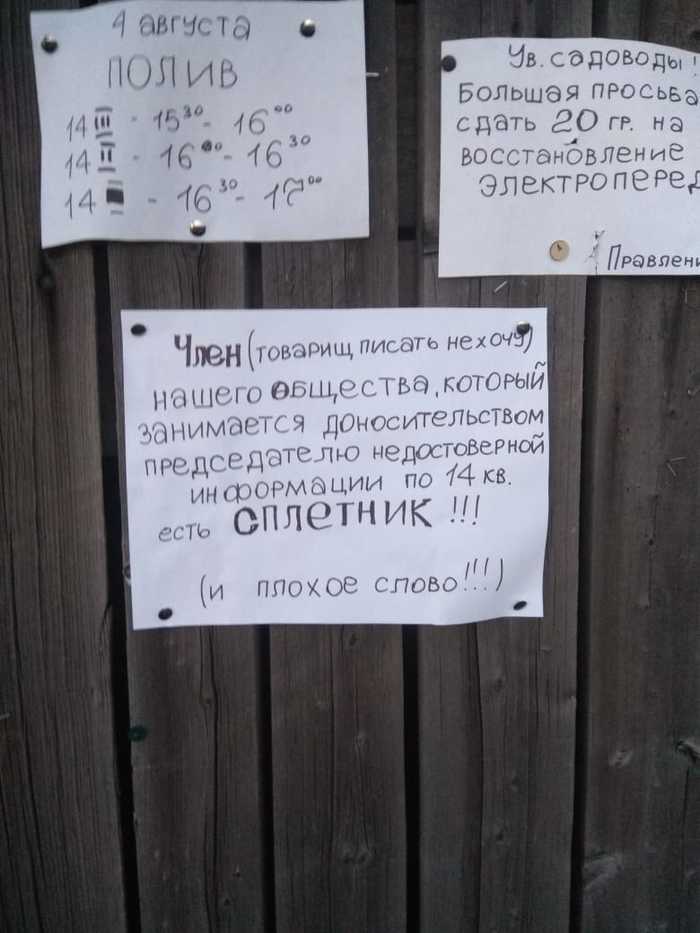 4 августа
ПОЛИВ
14 III - 15³⁰ - 16⁰⁰
14 II - 16⁰⁰ - 16³⁰
14 - 16³⁰ - 17⁰⁰
Ув. садоводы!
Большая просьба
сдать 20 гр. на
восстановление
электроперед
Правлени
Член (товарищ писать не хочу)
нашего общества, который
занимается доносительством
председателю недостоверной
информации по 14 кв.
есть СПЛЕТНИК !!!
(и плохое слово!!!)